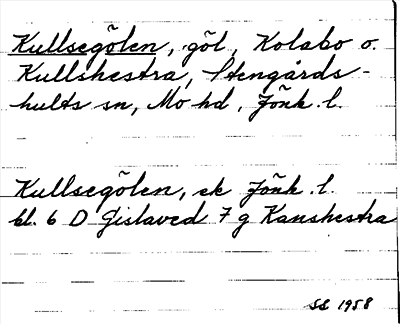 Kullsegölen, göl, Kolabo o.
Kullshestra, Stengårds-
hults sn, Mo hd, Jönk. l.
Kullsegölen, ek Jönk. l.
bl. 6 D Gislaved 7 g Kanshestra
SS 1958